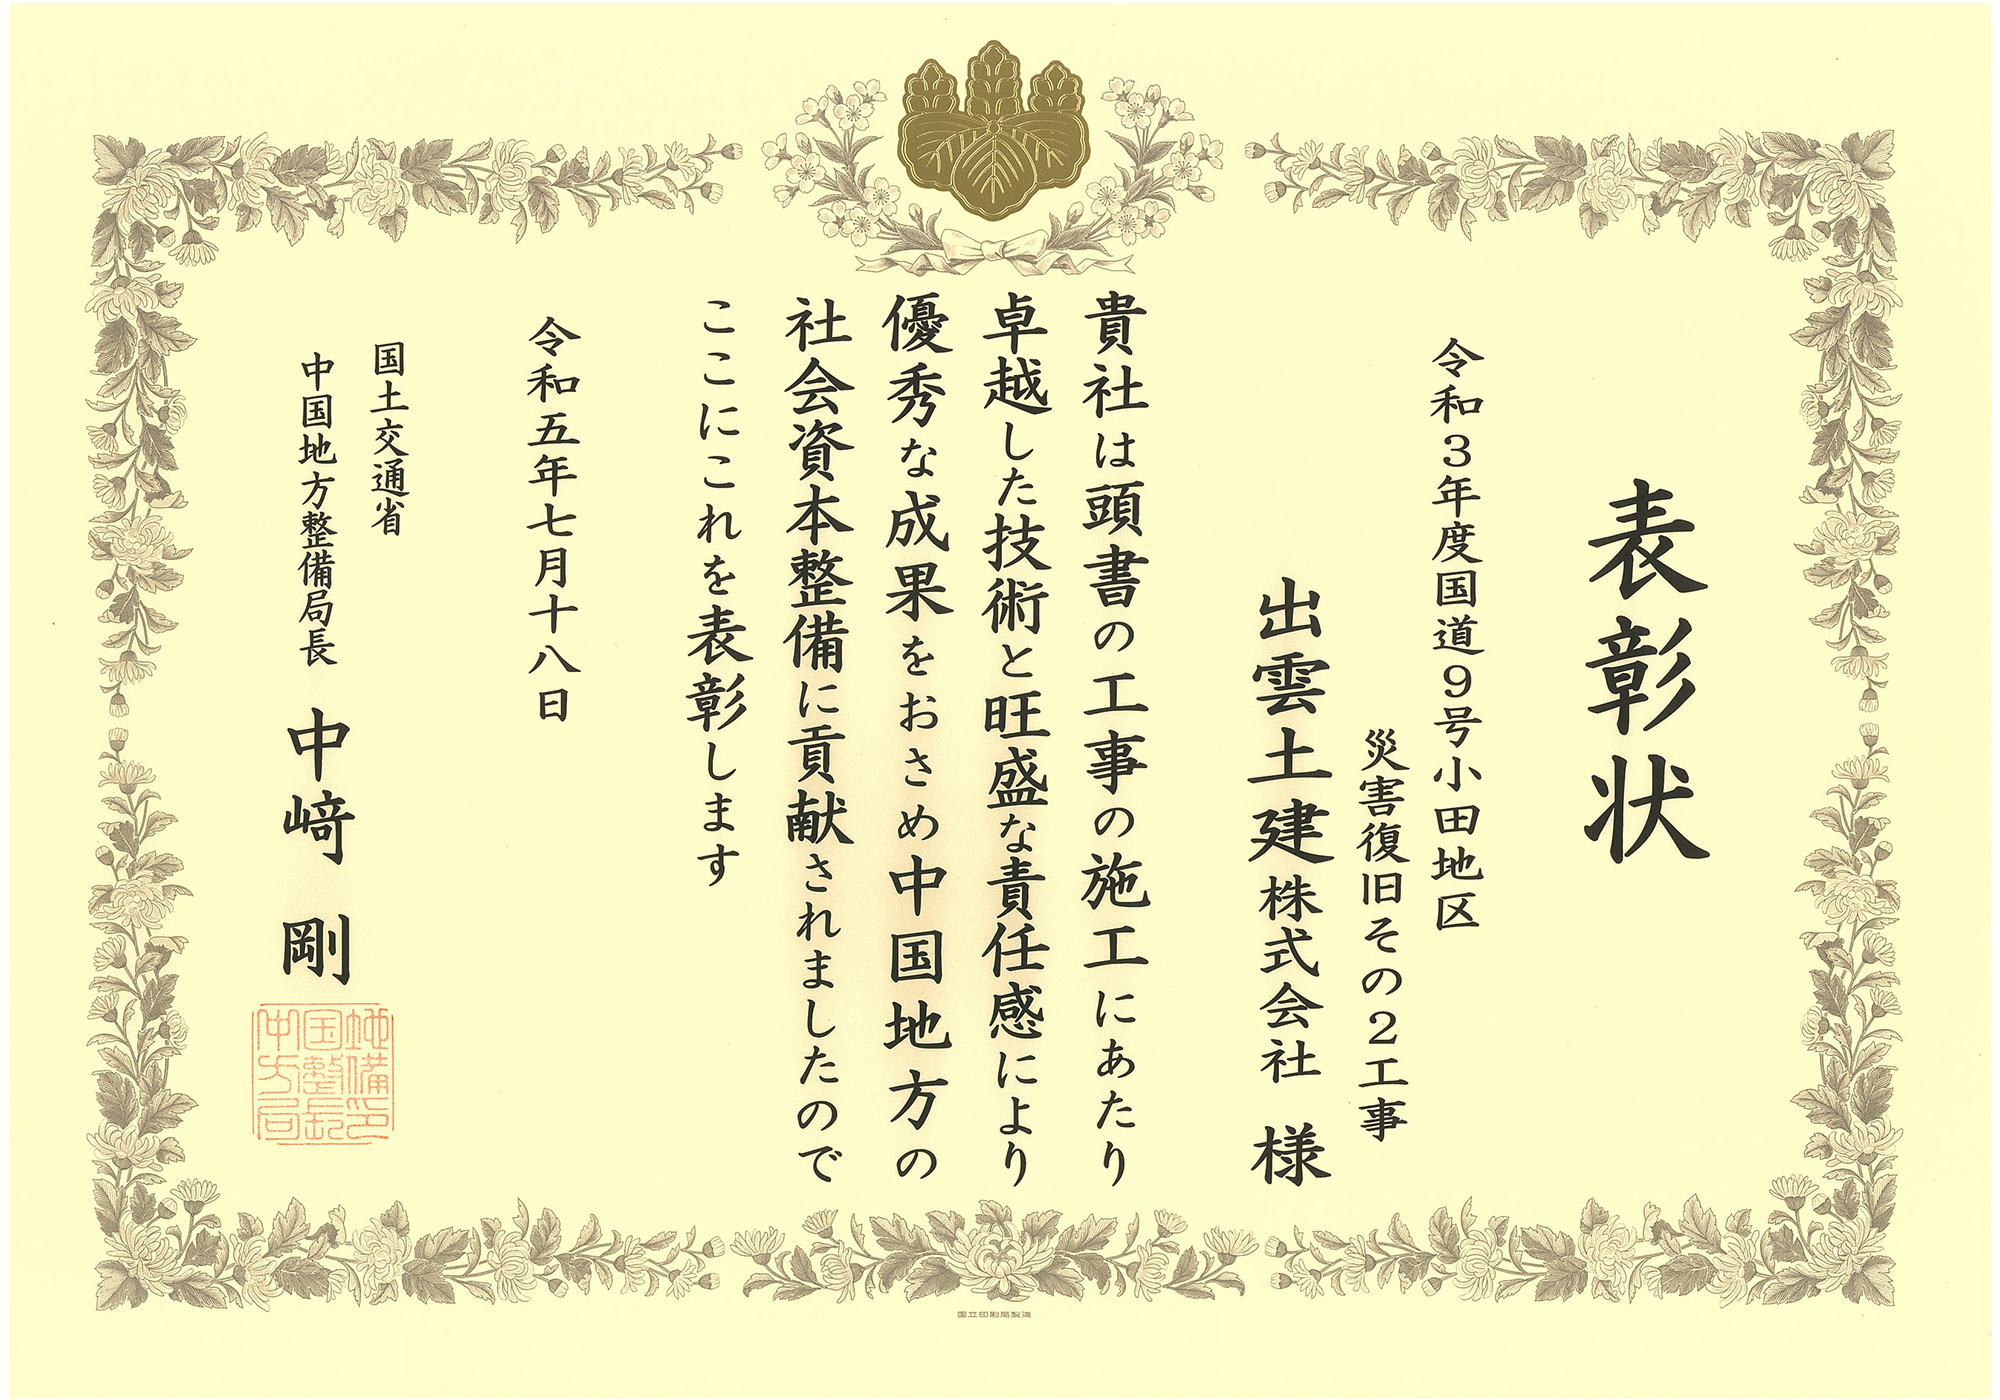 表彰状
令和３年度国道９号小田地区
災害復旧その２工事
出雲土建株式会社 様
貴社は頭書の工事の施工にあたり
卓越した技術と旺盛な責任感により
優秀な成果をおさめ中国地方の
社会資本整備に貢献されましたので
ここにこれを表彰します
令和五年七月十八日
国土交通省
中国地方整備局長 中﨑 剛
中国地
方整備
局長印
国立印刷局製造